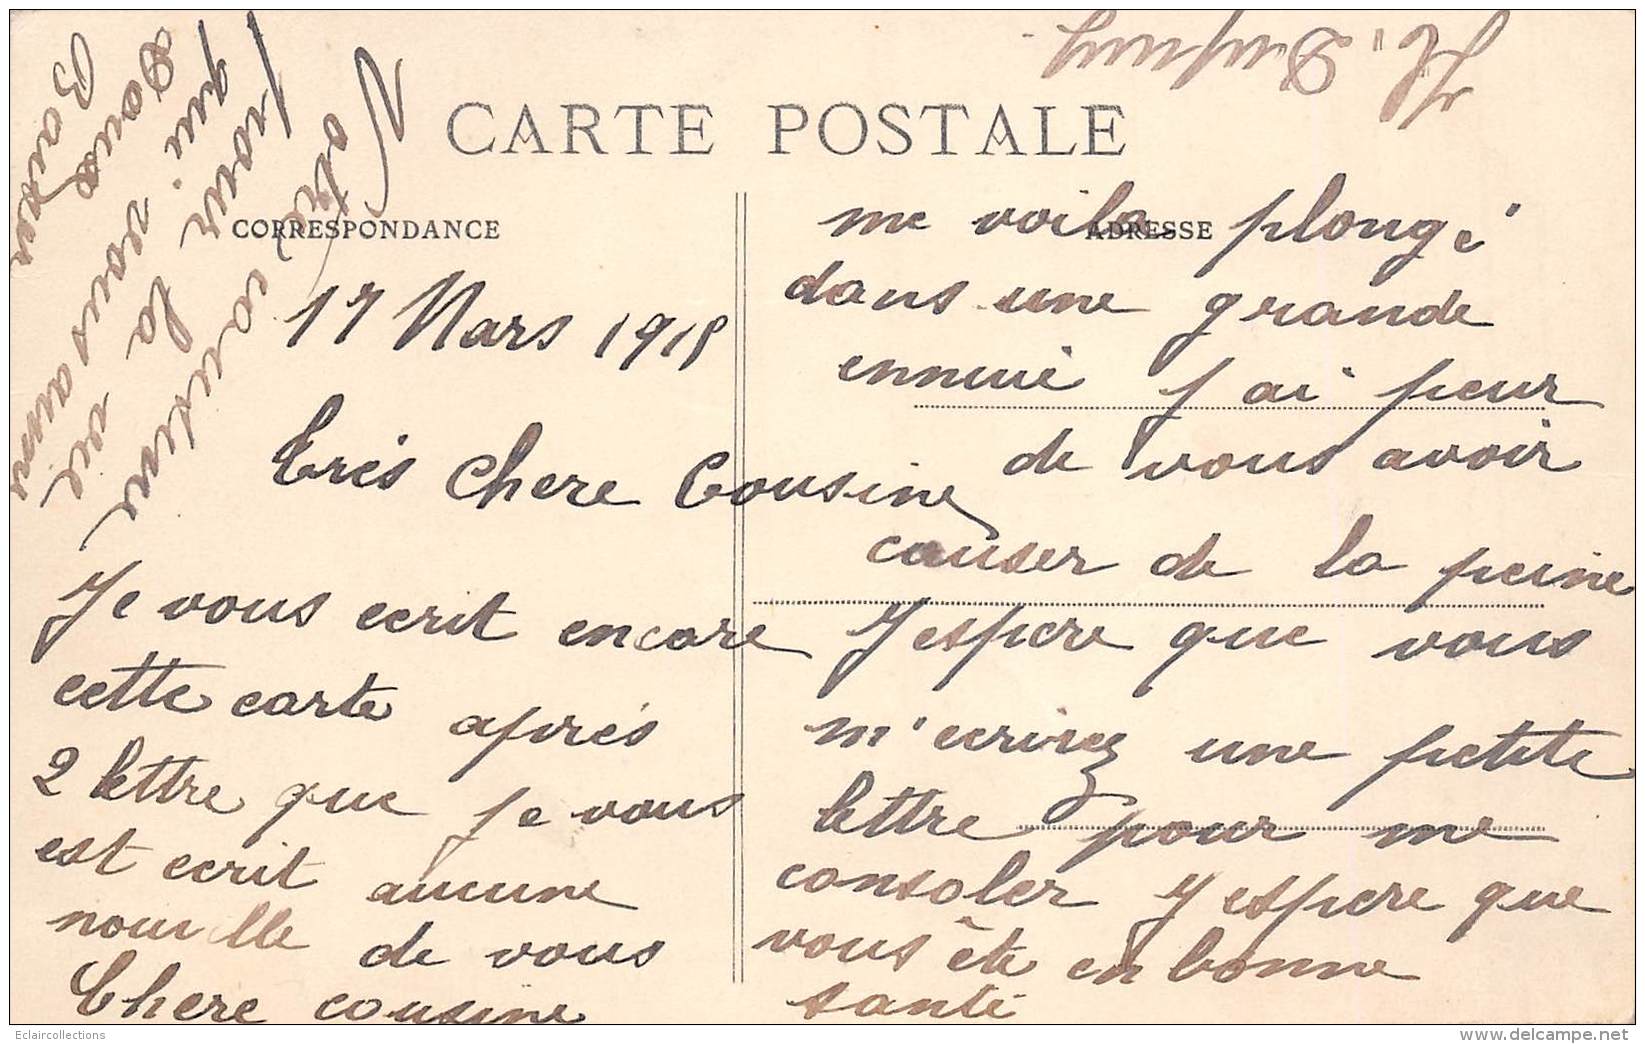 H. Dupuy
CARTE POSTALE
CORRESPONDANCE
ADRESSE
17 Mars 1915
Très Chere Cousine
Je vous ecrit encore
cette carte après
2 lettre que je vous
est ecrit aucune
nouvelle de vous
Chere cousine
me voila plongé
dans une grande
ennuie j ai peur
de vous avoir
causer de la peine
J espere que vous
m'ecrirez une petite
lettre pour me
consoler J espere que
vous ête en bonne
santé
Votre cousine
pour la vie
qui vous aime
Doux
Baiser
Eclaircollections
www.delcampe.net